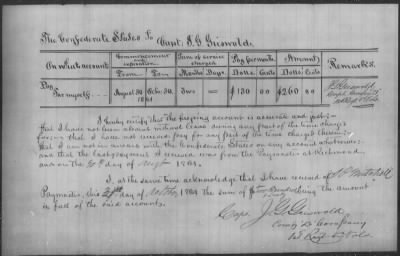 The Confederate States To Capt. J. G. Griswold.
On what account
Commencement and expiration
Term of service charged
Pay per month
Amount
Remarks.
From To Months Days Dolls. Cents Dolls. Cents
Pay
For myself August 30 1861 Octo. 30, 1861 Two — $130 00 $260 00
J G Griswold
Capt Company D
1st Regt Va Vols
I hereby certify that the foregoing account is accurate and just;
that I have not been absent without leave during any part of the time charged
for; that I have not received pay for any part of the time charged therein;
that I am not in arrears with the Confederate States on any account whatsoever;
and that the last payment I received was from the Paymaster at Richmond
and on the 30th day of Augt 1861.
I, at the same time acknowledge that I have received of
Paymaster, this day of 1861 the sum of Two Hundred Sixty the amount
in full of the said accounts.
Capt J. G. Griswold
Comg D Company
1st Regt Va Vols